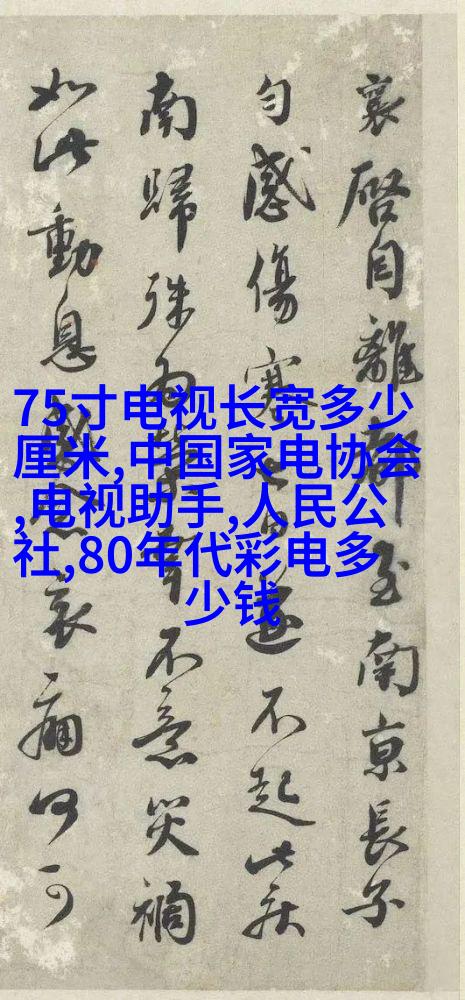 75寸电视长宽多少
厘米,中国家电协会
,电视助手,人民公
社,80年代彩电多
少钱
襄啓自離都至南京長子
匀感傷寒日遂不起此疾
南歸殊為不意災禍
如此動息哀痛何可